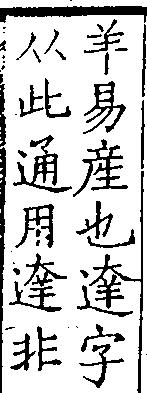 羊易産也逹字
从此通用達非